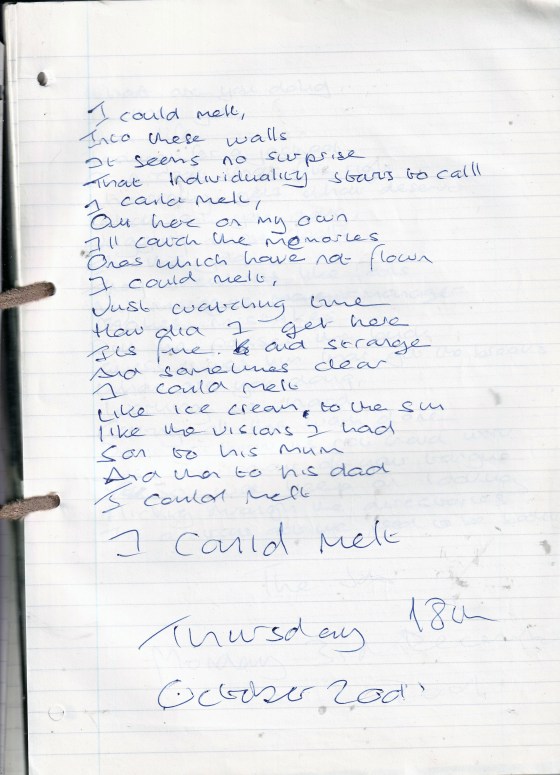 I could melt,
Into these walls
It seems no surprise
That individuality starts to call
I could melt,
Out here on my own
I'll catch the memories
Ones which have not flown
I could melt,
Just watching time
How did I get here
Its fine. and strange
And sometimes clear
I could melt
Like ice cream, to the sun
like the visions I had
Son to his mum
And then to his dad
I could melt
I could melt
Thursday 18th
October 2001